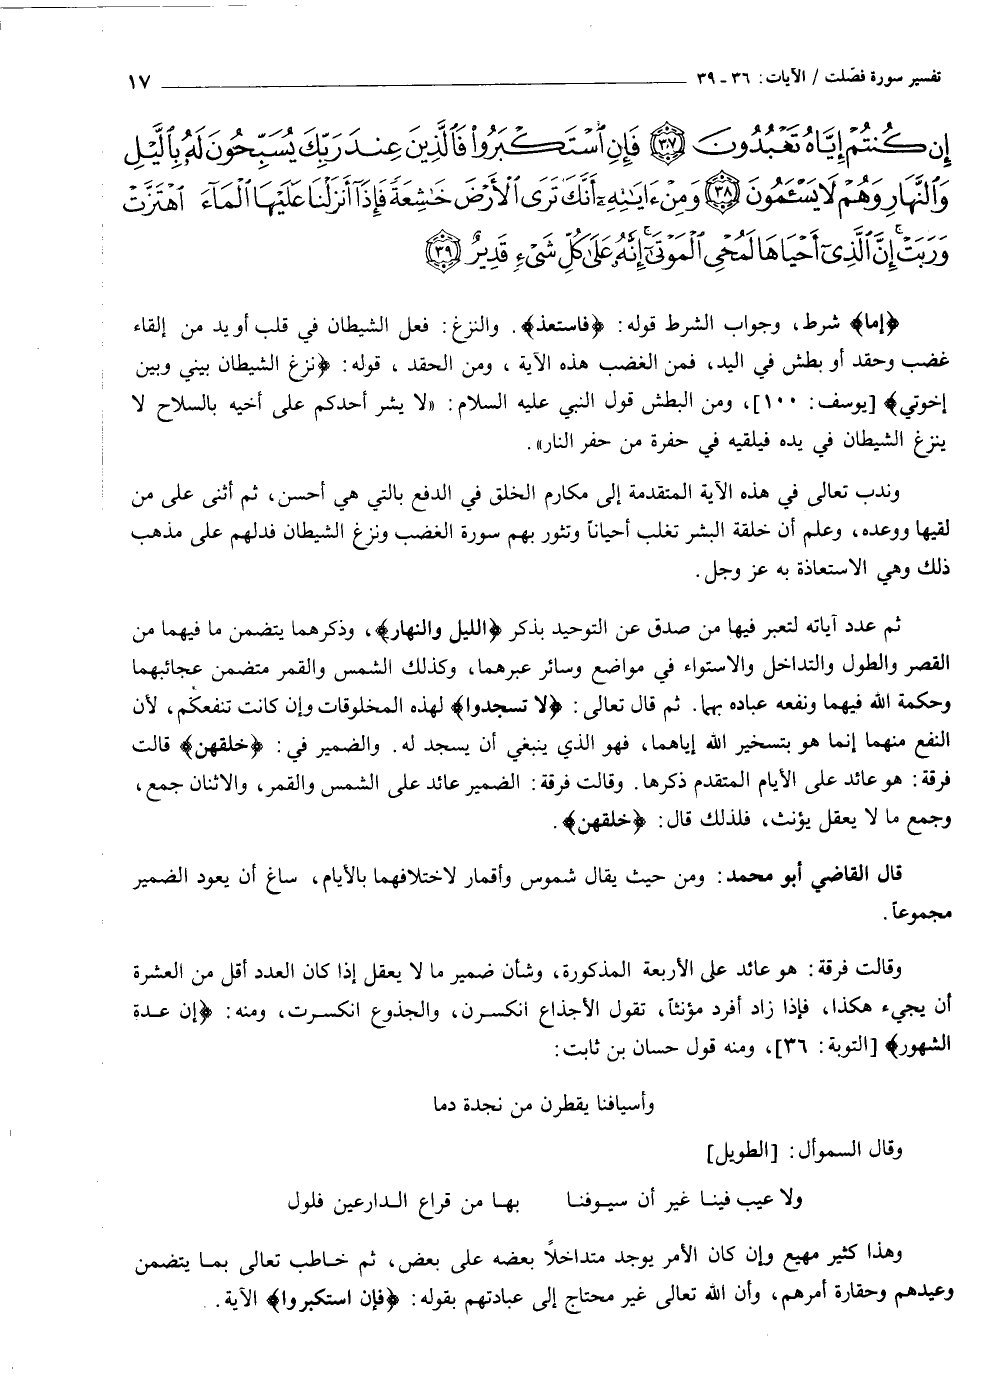 تفسير سورة فصّلت / الآيات: ٣٦ - ٣٩ ١٧
إِن كُنتُمْ إِيَّاهُ تَعْبُدُونَ ﴿٣٧﴾ فَإِنِ ٱسْتَكْبَرُواْ فَٱلَّذِينَ عِندَ رَبِّكَ يُسَبِّحُونَ لَهُۥ بِٱلَّيْلِ
وَٱلنَّهَارِ وَهُمْ لَا يَسْـَٔمُونَ ﴿٣٨﴾ وَمِنْ ءَايَـٰتِهِۦٓ أَنَّكَ تَرَى ٱلْأَرْضَ خَـٰشِعَةً فَإِذَآ أَنزَلْنَا عَلَيْهَا ٱلْمَآءَ ٱهْتَزَّتْ
وَرَبَتْ ۚ إِنَّ ٱلَّذِىٓ أَحْيَاهَا لَمُحْىِ ٱلْمَوْتَىٰٓ ۚ إِنَّهُۥ عَلَىٰ كُلِّ شَىْءٍ قَدِيرٌ ﴿٣٩﴾
﴿إما﴾ شرط، وجواب الشرط قوله: ﴿فاستعذ﴾. والنزغ: فعل الشيطان في قلب أو يد من إلقاء
غضب وحقد أو بطش في اليد، فمن الغضب هذه الآية ، ومن الحقد ، قوله: ﴿نزغ الشيطان بيني وبين
إخوتي﴾ [يوسف: ١٠٠]، ومن البطش قول النبي عليه السلام: «لا يشر أحدكم على أخيه بالسلاح لا
ينزغ الشيطان في يده فيلقيه في حفرة من حفر النار».
وندب تعالى في هذه الآية المتقدمة إلى مكارم الخلق في الدفع بالتي هي أحسن، ثم أثنى على من
لقيها ووعده، وعلم أن خلقة البشر تغلب أحياناً وتثور بهم سورة الغضب ونزغ الشيطان فدلهم على مذهب
ذلك وهي الاستعاذة به عز وجل.
ثم عدد آياته لتعبر فيها من صدق عن التوحيد بذكر ﴿الليل والنهار﴾، وذكرهما يتضمن ما فيهما من
القصر والطول والتداخل والاستواء في مواضع وسائر عبرهما، وكذلك الشمس والقمر متضمن عجائبهما
وحكمة الله فيهما ونفعه عباده بهما. ثم قال تعالى: ﴿لا تسجدوا﴾ لهذه المخلوقات وإن كانت تنفعكم، لأن
النفع منهما إنما هو بتسخير الله إياهما، فهو الذي ينبغي أن يسجد له. والضمير في: ﴿خلقهن﴾ قالت
فرقة: هو عائد على الأيام المتقدم ذكرها. وقالت فرقة: الضمير عائد على الشمس والقمر، والاثنان جمع،
وجمع ما لا يعقل يؤنث، فلذلك قال: ﴿خلقهن﴾.
قال القاضي أبو محمد: ومن حيث يقال شموس وأقمار لاختلافهما بالأيام، ساغ أن يعود الضمير
مجموعاً.
وقالت فرقة: هو عائد على الأربعة المذكورة، وشأن ضمير ما لا يعقل إذا كان العدد أقل من العشرة
أن يجيء هكذا، فإذا زاد أفرد مؤنثاً، تقول الأجذاع انكسرن، والجذوع انكسرت، ومنه: ﴿إن عدة
الشهور﴾ [التوبة: ٣٦]، ومنه قول حسان بن ثابت:
وأسيافنا يقطرن من نجدة دما
وقال السموأل: [الطويل]
ولا عيب فينا غير أن سيوفنا بها من قراع الدارعين فلول
وهذا كثير مهيع وإن كان الأمر يوجد متداخلاً بعضه على بعض، ثم خاطب تعالى بما يتضمن
وعيدهم وحقارة أمرهم، وأن الله تعالى غير محتاج إلى عبادتهم بقوله: ﴿فإن استكبروا﴾ الآية.